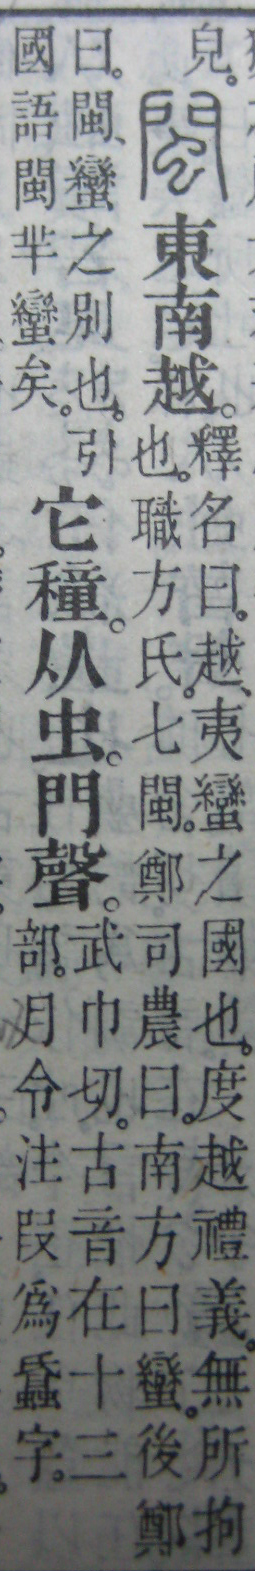 皃。
閩
東南越。
釋名曰。越、夷蠻之國也。度越禮義。無所拘
也。職方氏。七閩。鄭司農曰。南方曰蠻。後鄭
曰。閩、蠻之別也。引
國語閩芈蠻矣。
它穜。从虫。門聲。
武巾切。古音在十三
部。月令注叚爲蟁字。